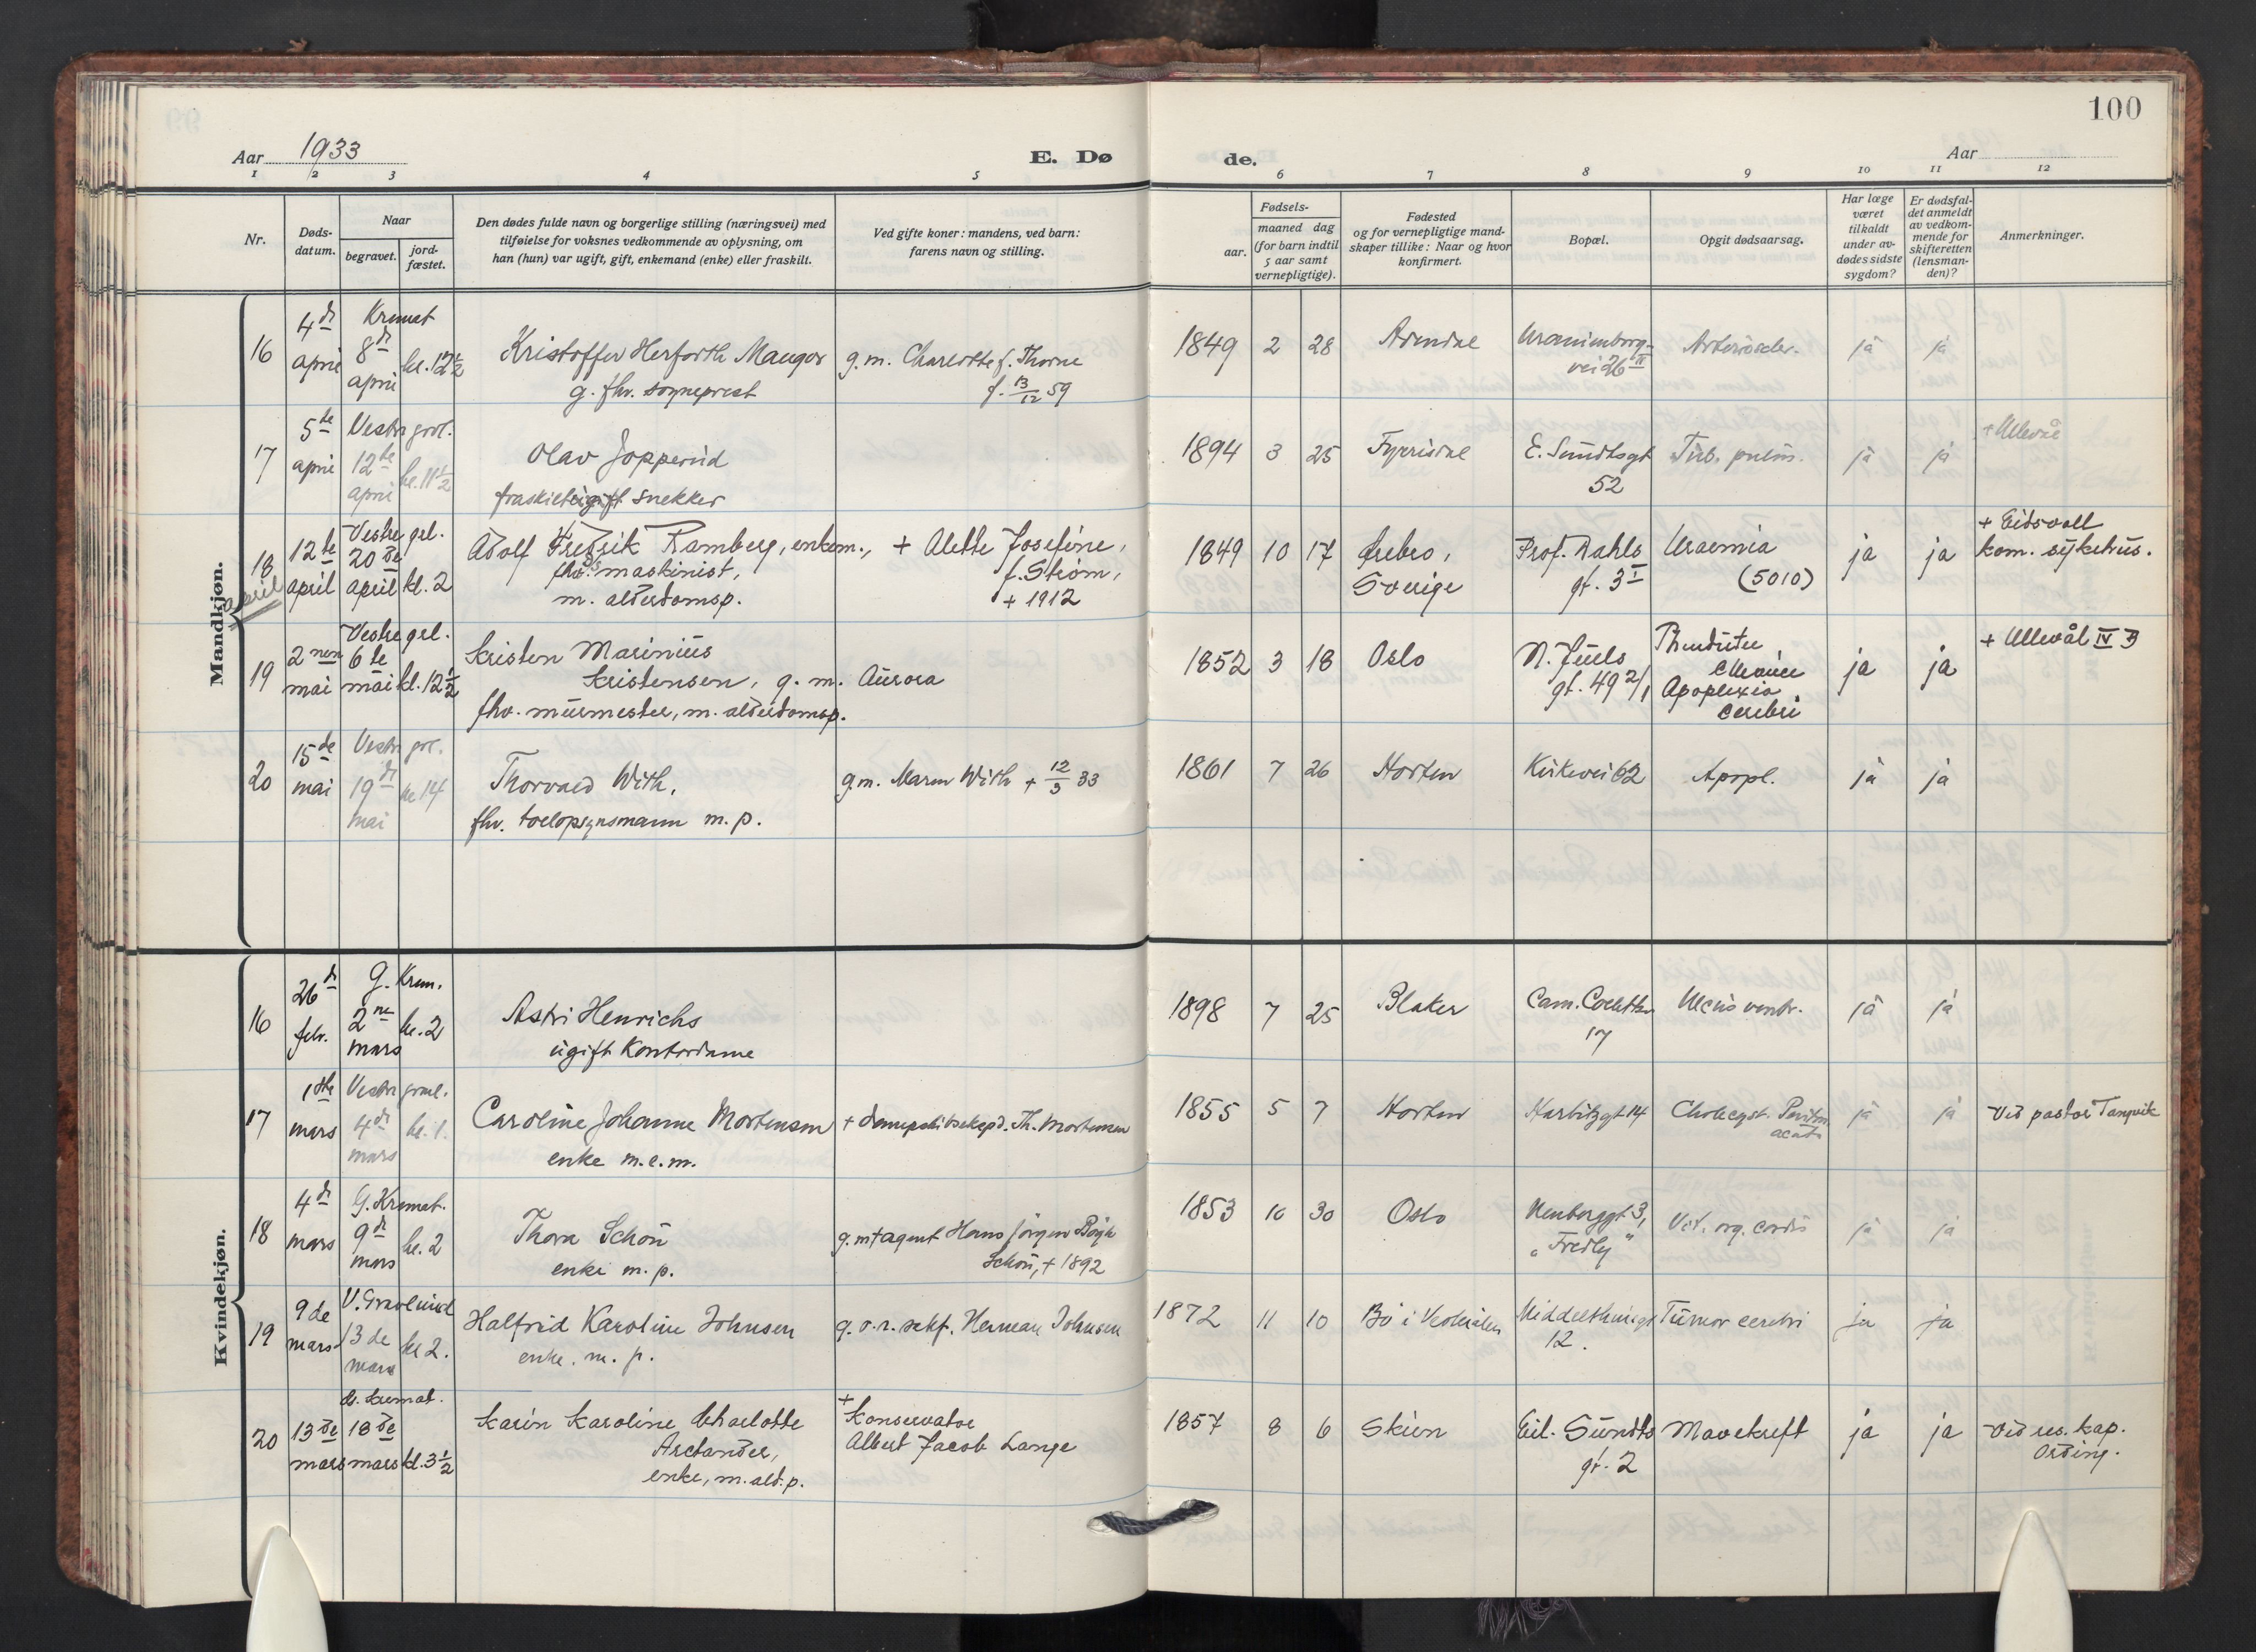 100
Aar 1933
E. Dø
de.
Aar
1 2 3 4 5 6 7 8 9 10 11 12
Nr.
Døds-
datum.
Naar
begravet.
jord-
fæstet.
Den dødes fulde navn og borgerlige stilling (næringsvei) med
tilføielse for voksnes vedkommende av oplysning, om
han (hun) var ugift, gift, enkemand (enke) eller fraskilt.
Ved gifte koner: mandens, ved barn:
farens navn og stilling.
Fødsels-
aar.
maaned dag
(for barn indtil
5 aar samt
vernepligtige).
Fødested
og for vernepligtige mand-
skaper tillike: Naar og hvor
konfirmert.
Bopæl.
Opgit dødsaarsag.
Har læge
været
tilkaldt
under av-
dødes sidste
sygdom?
Er dødsfal-
det anmeldt
av vedkom-
mende for
skifteretten
(lensman-
den)?
Anmerkninger.
Mandkjøn.
april
16
4de
april
Kremat
8de
april
kl. 12 1/2
Kristoffer Herforth Mauger
g. fhv. sogneprest
g. m. Charlotte f. Thorne
f. 13/12 59
1849 2 28
Arendal
Uranienborg-
vei 26 IV
Arteriosclr.
ja ja
17
5te
april
Vestre grvl.
12te
april
kl. 11 1/2
Olav Jopperud
fraskilt snekker
1894 3 25
Fyrisdal
E. Sundtsgt
52
Tub. pulm.
ja ja
+ Ullevål
18
12te
april
Vestre gel.
20de
april
kl. 2
Adolf Fredrik Ramberg, enkem.,
fhv. maskinist,
m. alderdomsp.
+ Alette Josefine,
f. Strøm,
+ 1912
1849 10 17
Ørebro,
Sverige
Prof. Dahls
gt. 3 I
Uraemia
(5010)
ja ja
+ Eidsvoll
kom. sykehus.
19
2nen
mai
Vestre gel.
6te
mai
kl. 12 1/2
Kristen Marinius
Kristensen, g. m.
fhv. murmester, m. alderdomsp.
Aurora
1852 3 18
Oslo
N. Juels
gt. 49 2/1
Apoplexia
cerebri
ja ja
+ Ullevål IV B
20
15de
mai
Vestre grl.
19de
mai
kl 14
Thorvald With,
fhv. toldopsynsmann m. p.
g. m. Maren With + 12/3 33
1861 7 26
Horten
Kirkevei 62
Apopl.
ja ja
Kvindekjøn.
16
26de
febr.
G. Krem.
2ne
mars
kl. 2
Astri Henrichs
ugift kontordame
1898 7 25
Blaker
Cam. Collettsv
17
Ulcus ventr.
ja ja
17
1ste
mars
Vestre gravl.
4de
mars
kl. 1.
Caroline Johanne Mortensen
enke m. e. m.
+ dampskibsexped. Th. Mortensen
1855 5 7
Horten
Harbitzgt 14
Cholecyst. Periton.
acuta
ja ja
Ved pastor Tanpvik
18
4de
mars
G. Kremat.
9de
mars
kl. 2
Thora Schøn
enke m. p.
g. m + agent Hans Jørgen Bøgh
Schøn, + 1892
1853 10 30
Oslo
Neuberggt 3,
"Fredly"
Vit. org. cordis
ja ja
19
9 de
mars
V. Gravlund
13 de
mars
kl 2.
Halfrid Karoline Johnsen
enke. m. p.
g. o. r. sakf. Herman Johnsen
1872 11 10
Bø i Vesterålen
Middelthunsgt
12.
Tumor cerebri
ja ja
20
13de
mars
G. Kremat.
18de
mars
kl. 3 1/2
Karin Karoline Charlotte
Arctander,
enke, m. ald. p.
+
Konservator
Albert Jacob Lange
1857 8 6
Skien
Eil. Sundts
gt. 2
Mavekreft
ja ja
Ved res. kap.
Ording.